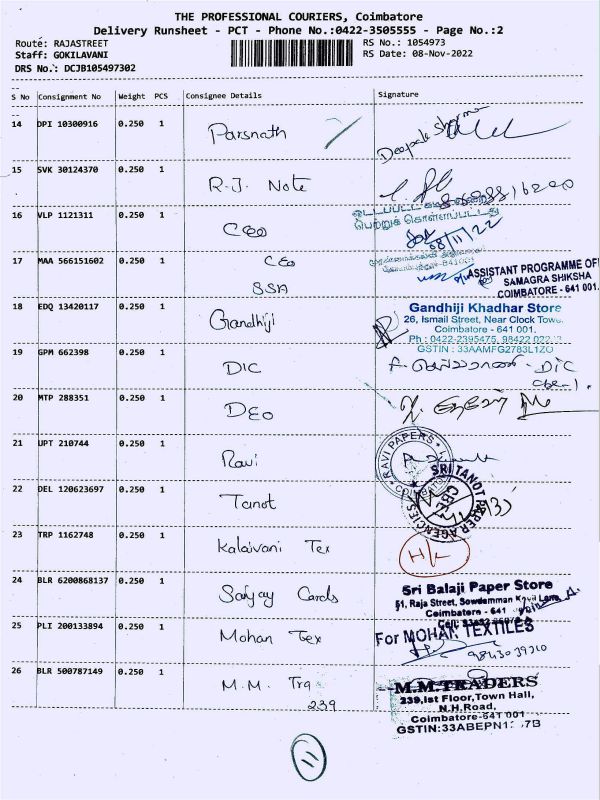 THE PROFESSIONAL COURIERS, Coimbatore
Delivery Runsheet - PCT - Phone No.:0422-3505555 - Page No.:2
Route: RAJASTREET
RS No.: 1054973
Staff: GOKILAVANI
RS Date: 08-Nov-2022
DRS No.: DCJB105497302
S No Consignment No Weight PCS Consignee Details Signature
14 DPI 10300916 0.250 1 Parsnath Deepak Sharma
15 SVK 30124370 0.250 1 R.J. Note
16 VLP 1121311 0.250 1 CEO
பெற்றுக் கொள்ளப்பட்டது
08/11/22
17 MAA 566151602 0.250 1 CEO
SSA
ASSISTANT PROGRAMME OF
SAMAGRA SHIKSHA
COIMBATORE - 641 001.
18 EDQ 13420117 0.250 1 Gandhiji
Gandhiji Khadhar Store
26, Ismail Street, Near Clock Towe
Coimbatore - 641 001.
Ph : 0422-2395475, 98422
GSTIN : 33AAMFG2783L1ZO
19 GPM 662398 0.250 1 DIC DIC
Cbe-1.
20 MTP 288351 0.250 1 DEO
21 UPT 210744 0.250 1 Ravi
RAVI PAPERS
22 DEL 120623697 0.250 1 Tanot
SRI TANOT PAPER AGENCIES
CBE-1
23 TRP 1162748 0.250 1 Kalaivani Tex H/L
24 BLR 6200868137 0.250 1 Sanjay Cards
Sri Balaji Paper Store
51, Raja Street, Sowdamman Kovil Lane
Coimbatore - 641
25 PLI 200133894 0.250 1 Mohan Tex
For MOHAN TEXTILES
9843039210
26 BLR 500787149 0.250 1 M.M. Tra
239
M.M.TRADERS
239,Ist Floor,Town Hall,
N.H.Road,
Coimbatore-641 001
GSTIN:33ABEPN1
11